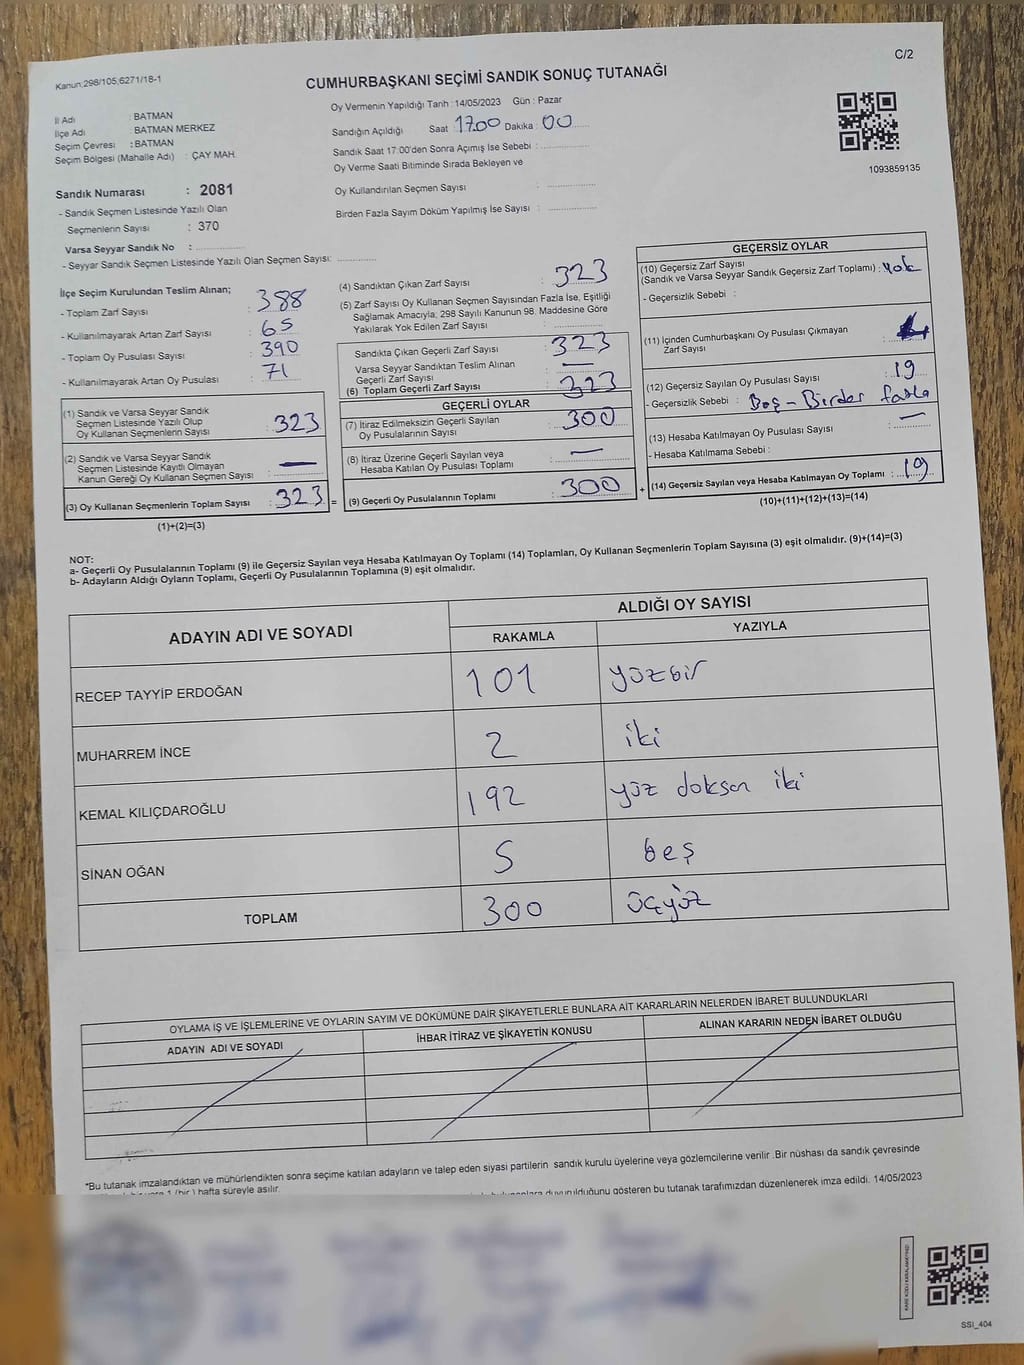 Kanun:298/105,6271/18-1
C/2
CUMHURBAŞKANI SEÇİMİ SANDIK SONUÇ TUTANAĞI
İl Adı : BATMAN
İlçe Adı : BATMAN MERKEZ
Seçim Çevresi : BATMAN
Seçim Bölgesi (Mahalle Adı) : ÇAY MAH.
Oy Vermenin Yapıldığı Tarih : 14/05/2023 Gün : Pazar
Sandığın Açıldığı Saat 17.00 Dakika : 00
Sandık Saat 17:00'den Sonra Açımış İse Sebebi :
Oy Verme Saati Bitiminde Sırada Bekleyen ve
Oy Kullandırılan Seçmen Sayısı :
Birden Fazla Sayım Döküm Yapılmış İse Sayısı :
1093859135
Sandık Numarası : 2081
- Sandık Seçmen Listesinde Yazılı Olan
Seçmenlerin Sayısı : 370
Varsa Seyyar Sandık No :
- Seyyar Sandık Seçmen Listesinde Yazılı Olan Seçmen Sayısı:
İlçe Seçim Kurulundan Teslim Alınan;
- Toplam Zarf Sayısı : 388
- Kullanılmayarak Artan Zarf Sayısı : 65
- Toplam Oy Pusulası Sayısı : 390
- Kullanılmayarak Artan Oy Pusulası : 71
(1) Sandık ve Varsa Seyyar Sandık
Seçmen Listesinde Yazılı Olup
Oy Kullanan Seçmenlerin Sayısı : 323
(2) Sandık ve Varsa Seyyar Sandık
Seçmen Listesinde Kayıtlı Olmayan
Kanun Gereği Oy Kullanan Seçmen Sayısı : —
(3) Oy Kullanan Seçmenlerin Toplam Sayısı : 323 =
(1)+(2)=(3)
(4) Sandıktan Çıkan Zarf Sayısı : 323
(5) Zarf Sayısı Oy Kullanan Seçmen Sayısından Fazla İse, Eşitliği
Sağlamak Amacıyla, 298 Sayılı Kanunun 98. Maddesine Göre
Yakılarak Yok Edilen Zarf Sayısı :
Sandıkta Çıkan Geçerli Zarf Sayısı : 323
Varsa Seyyar Sandıktan Teslim Alınan
Geçerli Zarf Sayısı : —
(6) Toplam Geçerli Zarf Sayısı : 323
GEÇERLİ OYLAR
(7) İtiraz Edilmeksizin Geçerli Sayılan
Oy Pusulalarının Sayısı : 300
(8) İtiraz Üzerine Geçerli Sayılan veya
Hesaba Katılan Oy Pusulası Toplamı : —
(9) Geçerli Oy Pusulalarının Toplamı : 300 +
GEÇERSİZ OYLAR
(10) Geçersiz Zarf Sayısı
(Sandık ve Varsa Seyyar Sandık Geçersiz Zarf Toplamı) : Yok
- Geçersizlik Sebebi :
(11) İçinden Cumhurbaşkanı Oy Pusulası Çıkmayan
Zarf Sayısı :
(12) Geçersiz Sayılan Oy Pusulası Sayısı : 19
- Geçersizlik Sebebi : Boş - Birden fazla
(13) Hesaba Katılmayan Oy Pusulası Sayısı : —
- Hesaba Katılmama Sebebi :
(14) Geçersiz Sayılan veya Hesaba Katılmayan Oy Toplamı : 19
(10)+(11)+(12)+(13)=(14)
NOT:
a- Geçerli Oy Pusulalarının Toplamı (9) ile Geçersiz Sayılan veya Hesaba Katılmayan Oy Toplamı (14) Toplamları, Oy Kullanan Seçmenlerin Toplam Sayısına (3) eşit olmalıdır. (9)+(14)=(3)
b- Adayların Aldığı Oyların Toplamı, Geçerli Oy Pusulalarının Toplamına (9) eşit olmalıdır.
ADAYIN ADI VE SOYADI
ALDIĞI OY SAYISI
RAKAMLA YAZIYLA
RECEP TAYYİP ERDOĞAN 101 yüzbir
MUHARREM İNCE 2 iki
KEMAL KILIÇDAROĞLU 192 yüz doksan iki
SİNAN OĞAN 5 beş
TOPLAM 300 üçyüz
OYLAMA İŞ VE İŞLEMLERİNE VE OYLARIN SAYIM VE DÖKÜMÜNE DAİR ŞİKAYETLERLE BUNLARA AİT KARARLARIN NELERDEN İBARET BULUNDUKLARI
ADAYIN ADI VE SOYADI İHBAR İTİRAZ VE ŞİKAYETİN KONUSU ALINAN KARARIN NEDEN İBARET OLDUĞU
*Bu tutanak imzalandıktan ve mühürlendikten sonra seçime katılan adayların ve talep eden siyasi partilerin sandık kurulu üyelerine veya gözlemcilerine verilir .Bir nüshası da sandık çevresinde
1 (bir ) hafta süreyle asılır.
duyurulduğunu gösteren bu tutanak tarafımızdan düzenlenerek imza edildi. 14/05/2023
KARE KODU KARALAMAYINIZ!
SSİ_404